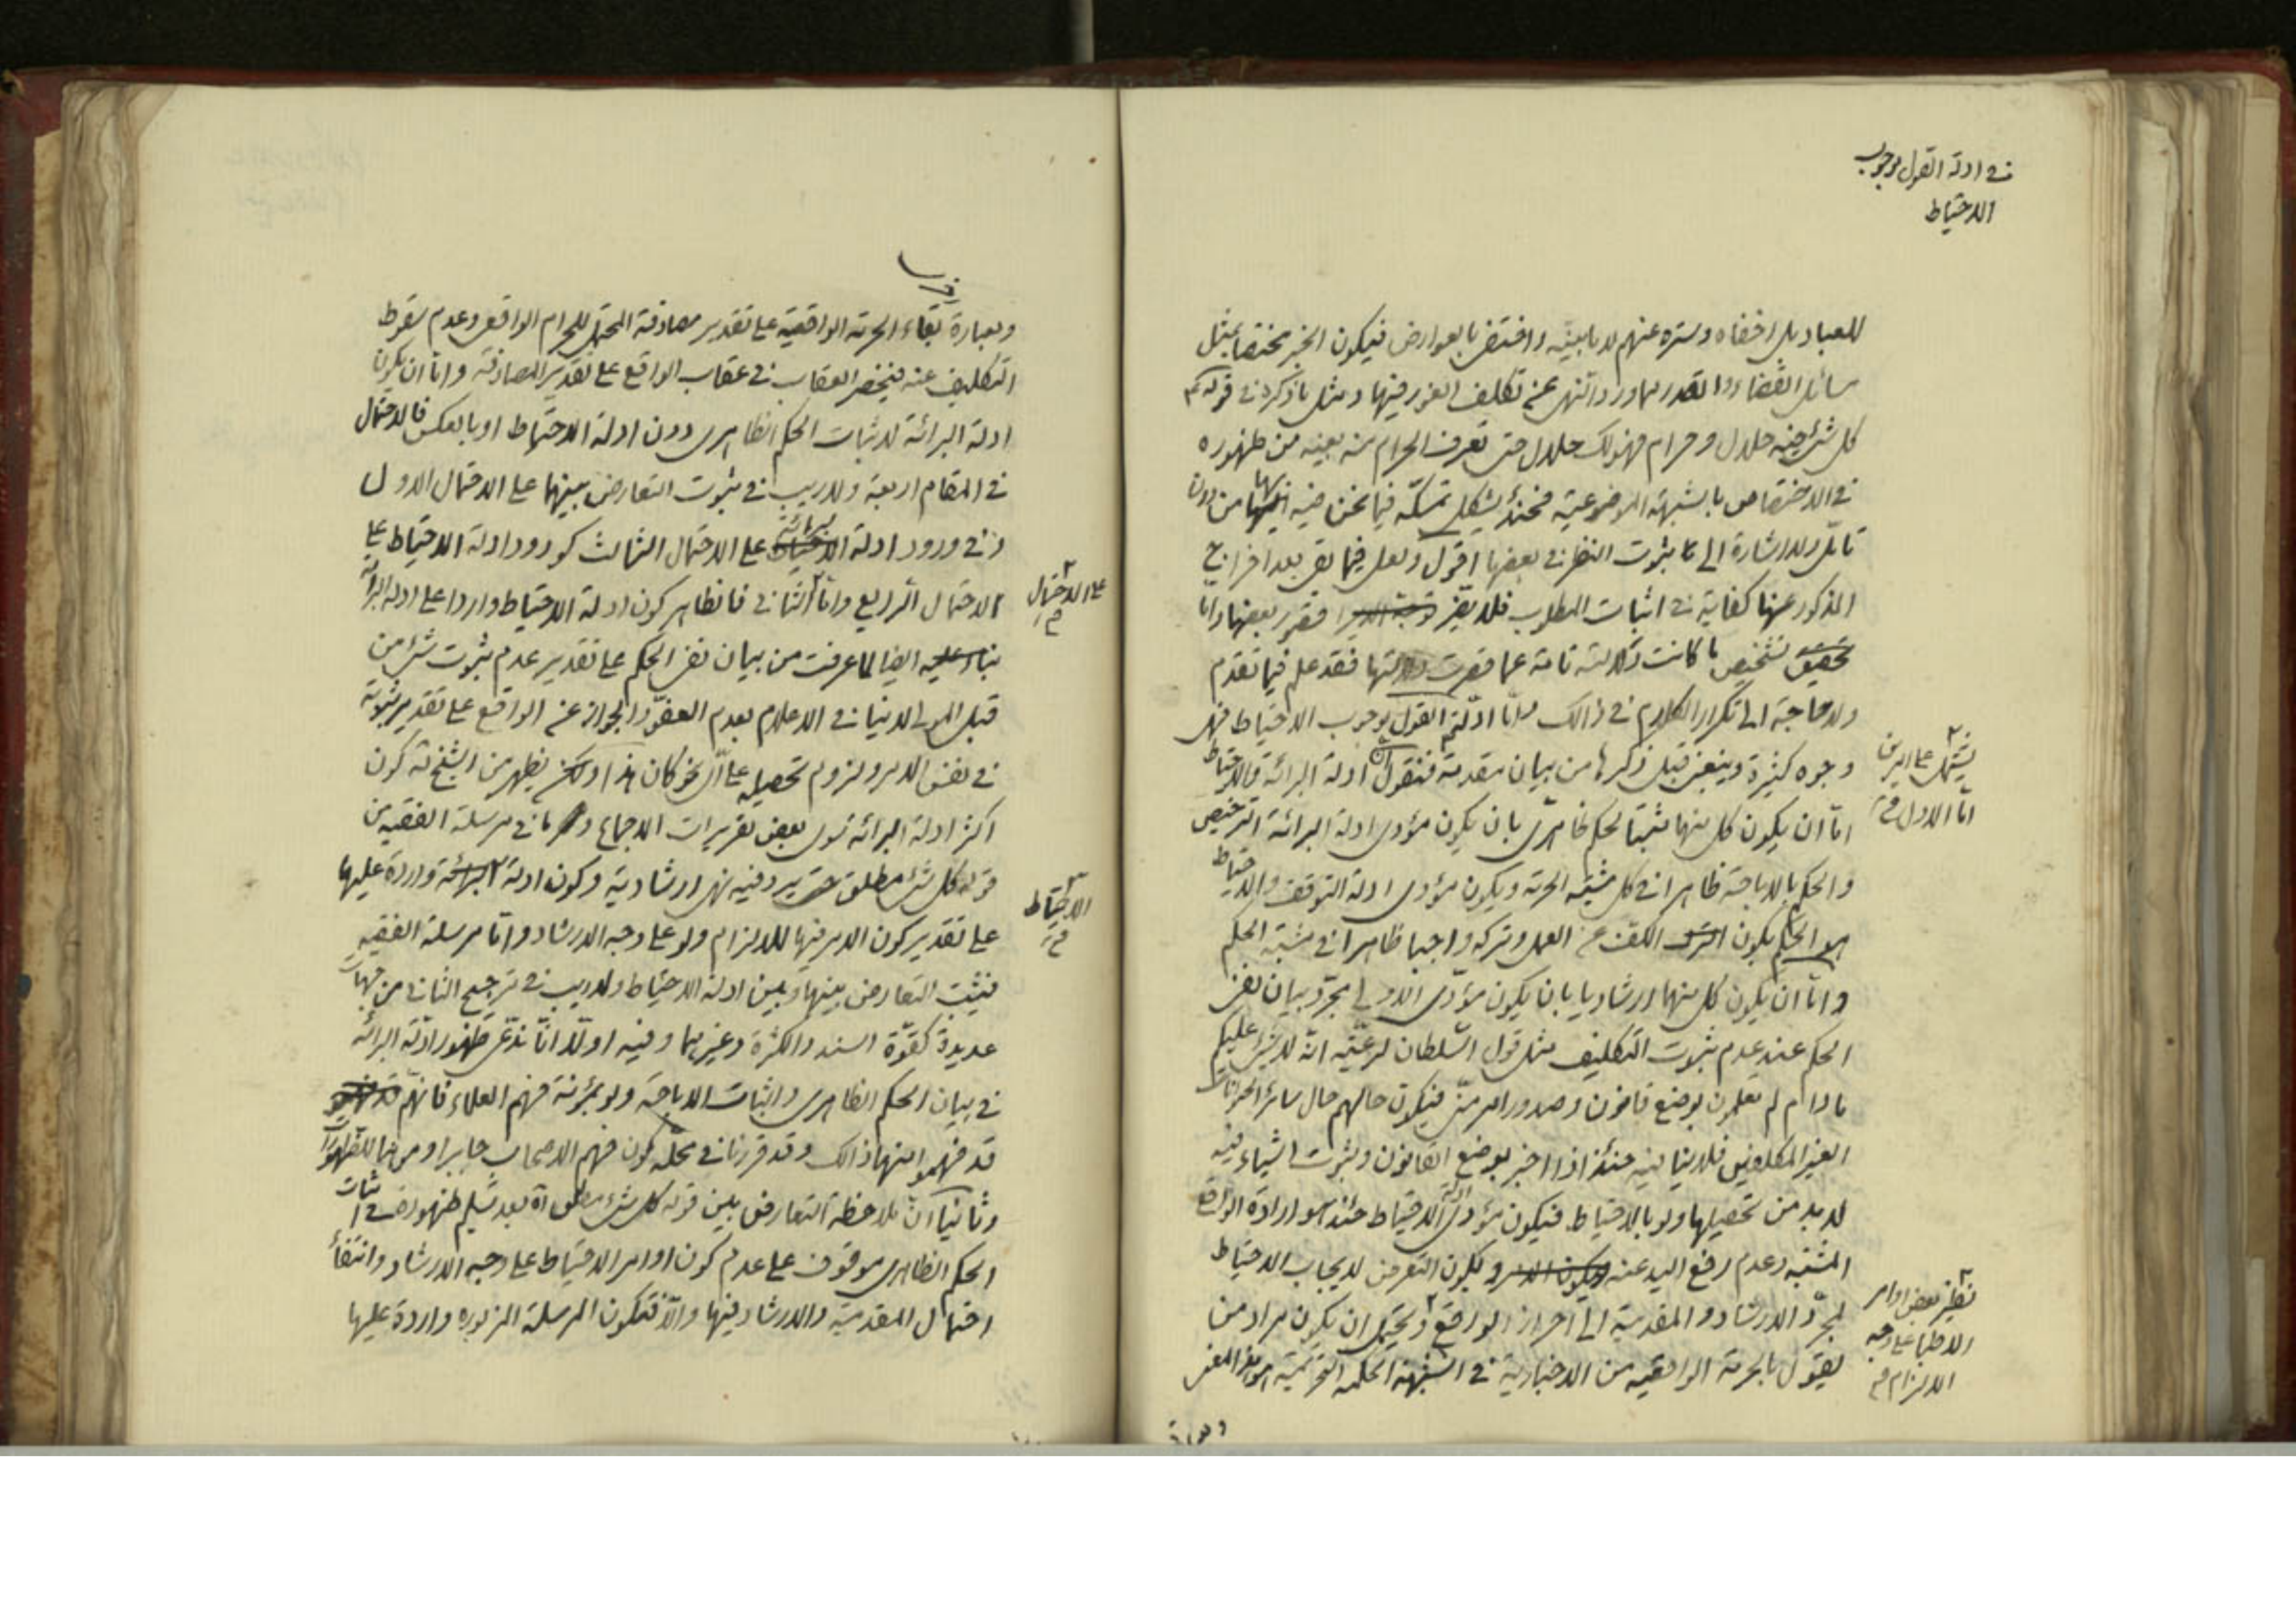 في ادلة القول بوجوب
الاحتياط
للعباد بل اخفاه وستره عنهم لا ما بينه واختفى بالعوارض فيكون الخبر مختصا بمثل
مسائل القضاء والقدر مما ورد النهى عن تكلف الغور فيها ومثل ما ذكره في قوله
كل شئ فيه حلال وحرام فهو لك حلال حتى تعرف الحرام منه بعينه من ظهوره
في الاختصاص بالشبهة الموضوعية فحينئذ يشكل تمسكه فيما نحن فيه من دون
تامل والاشارة الى ثبوت النظر في بعضها اقول ولعل فيما بقى بعد اخراج
المذكور عنها كفاية في اثبات المطلوب فلا يضر قصور بعضها واما
تشخيص ما كانت دلالته تامة عما قصرت دلالتها فقد علم فيما تقدم
ولا حاجة الى تكرار الكلام في ذالك واما ادلة القول بوجوب الاحتياط فهى
وجوه كثيرة وينبغى قبل ذكرها من بيان مقدمة فنقول ان ادلة البرائة والاحتياط
يشتمل على امرين
اما الاول
اما ان يكون كل منهما مثبتا لحكم ظاهرى بان يكون مؤدى ادلة البرائة الترخيص
والحكم بالاباحة ظاهرا في كل مشتبه الحرمة ويكون مؤدى ادلة التوقف والاحتياط
هو الحكم بكون الكف عن العمل وتركه واجبا ظاهرا في مشتبه الحكم
واما ان يكون كل منهما ارشاديا بان يكون مؤدى الاولى مجرد بيان نفى
الحكم عند عدم ثبوت التكليف مثل قول السلطان لرعيته انه لا شئ عليكم
ما دام لم تعلمون بوضع قانون وصدور امر منى فيكون حالهم حال سائر الحيوانات
الغير المكلفين فلا ينافيه حينئذ اذا اخبر بوضع القانون وبثبوت اشياء فيه
لا بد من تحصيلها ولو بالاحتياط فيكون مؤدى ادلة الاحتياط حينئذ هو ارادة الواقع
المشتبه وعدم رفع اليد عنه ويكون التعرض لايجاب الاحتياط
لمجرد الارشاد والمقدمية الى احراز الواقع ويحتمل ان يكون مراد من
نظير بعض اوامر
الاطباء على وجه
الالزام
يقول بالحرمة الواقعية من الاخبارية في الشبهة الحكمية التحريمية هو هذا المعنى
وبعبارة
وبعبارة بقاء الحرمة الواقعية على تقدير مصادفة المحتمل للحرام الواقعى وعدم سقوط
التكليف عنه فينحصر العقاب في عقاب الواقع على تقدير المصادفة واما ان يكون
ادلة البرائة لاثبات الحكم الظاهرى دون ادلة الاحتياط او بالعكس فالاحتمال
في المقام اربعة ولا ريب في ثبوت التعارض بينهما على الاحتمال الاول
وفي ورود ادلة البرائة على الاحتمال الثالث كورود ادلة الاحتياط على
الاحتمال الرابع واما الثانى فالظاهر كون ادلة الاحتياط واردا على ادلة البرائة
على الاحتمال
ايضا لما عرفت من بيان نفى الحكم على تقدير عدم ثبوت شئ من
قبل المولى لا ينافى الاعلام بعدم العفو والجواز عن الواقع على تقدير ثبوته
في نفس الامر ولزوم تحصيله على اى نحو كان هذا ولكن يظهر من الشيخ كون
اكثر ادلة البرائة سوى بعض تقريرات الاجماع وما في مرسلة الفقيه من
قوله كل شئ مطلق حتى يرد فيه نهى ارشادية وكون ادلة واردة عليها
الاحتياط
على تقدير كون الامر فيها للالزام ولو على وجه الارشاد واما مرسلة الفقيه
فيثبت التعارض بينها وبين ادلة الاحتياط ولا ريب في ترجيح الثانى من جهات
عديدة كقوة السند والكثرة وغيرهما وفيه اولا انا ندعى ظهور ادلة البرائة
في بيان الحكم الظاهرى واثبات الاباحة ولو بمؤنة فهم العلماء فانهم
قد فهموا منها ذالك وقد قررنا في محله كون فهم الاصحاب جابرا
وثانيا ان ملاحظة التعارض بين قوله كل شئ مطلق آه بعد تسليم ظهوره في اثبات
الحكم الظاهرى موقوف على عدم كون اوامر الاحتياط على وجه الارشاد وانتفاء
احتمال المقدمية والارشاد فيها والا فتكون المرسلة المزبوره واردة عليها